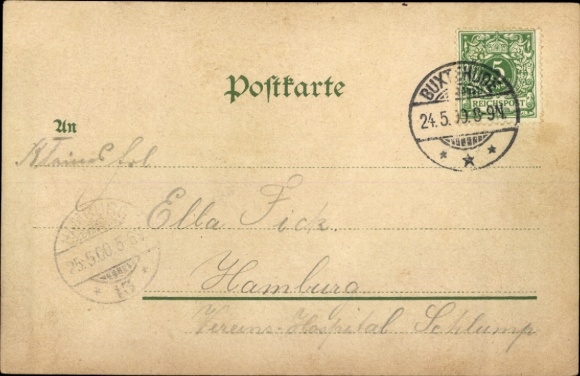 Postkarte
5
REICHSPOST
BUXTEHUDE
24.5.00.8-9N.
An
Ella Fick.
HAMBURG
25.5.00.
13
Hamburg
Vereins-Hospital Schlump